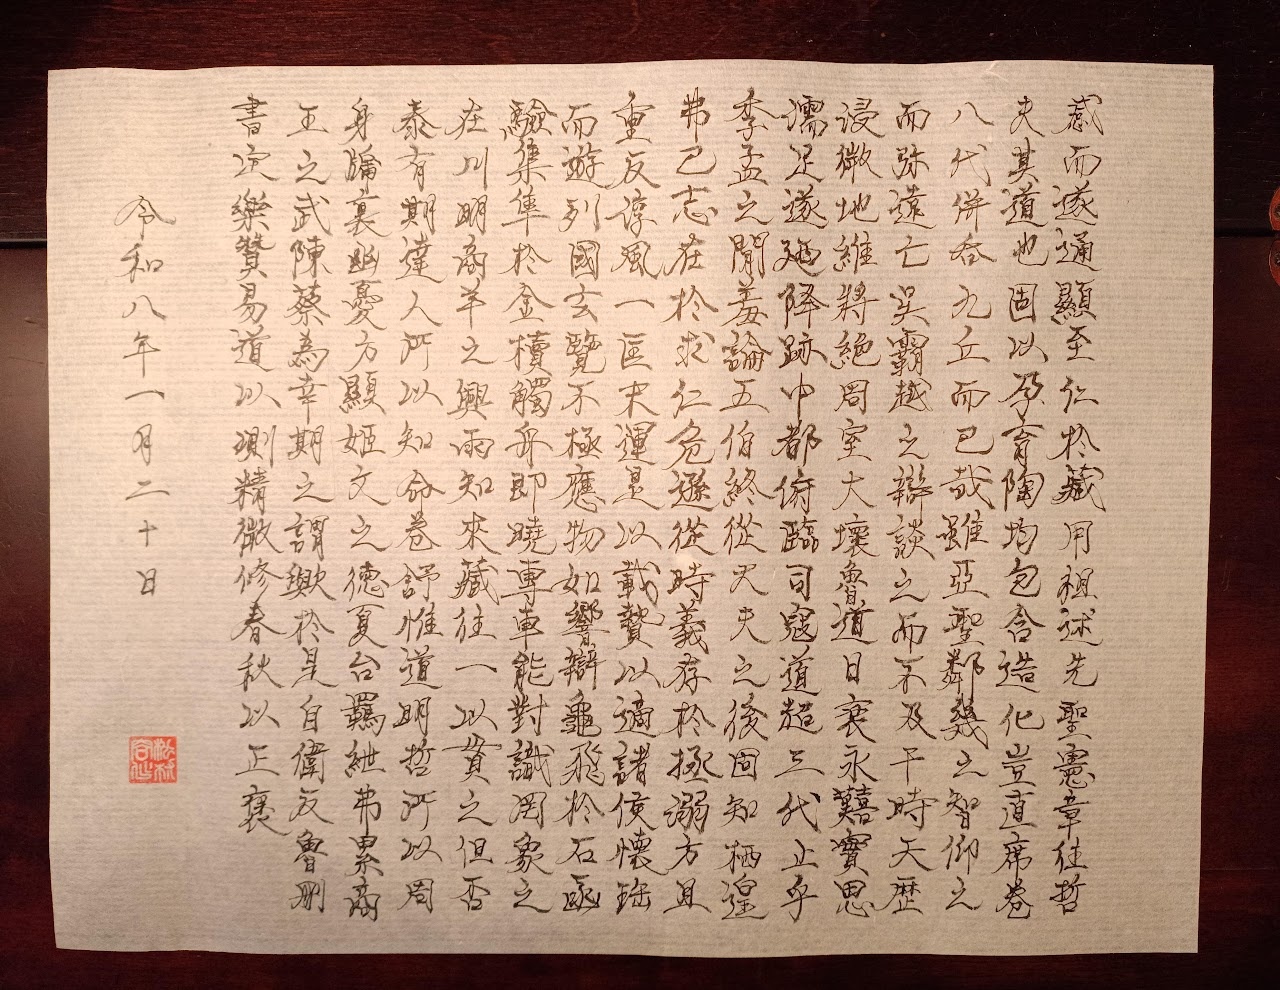 感而遂通顯至仁於藏用祖述先聖憲章往哲
夫其道也固以孕育陶均包含造化豈直席卷
八代併吞九丘而已哉雖亞聖鄰幾之智仰之
而弥遠亡吳霸越之辯談之而不及于時天歷
浸微地維將絶周室大壞魯道日衰永囏實思
濡足遂廼降跡中都俯臨司寇道超三代止乎
季孟之閒羞論五伯終從大夫之後固知栖遑
弗已志在於求仁危遜從時義存於拯溺方且
重反淳風一匡末運是以載贄以適諸侯懷珤
而遊列國玄覽不極應物如響辯龜飛於石函
驗集隼於金櫝觸舟即曉專車能對識罔象之
在川明商羊之興雨知來藏往一以貫之但否
泰有期達人所以知命卷舒惟道明哲所以周
身牖裏幽憂方顯姬文之德夏台羈紲弗累商
王之武陳蔡為幸期之謂歟於是自衛反魯刪
書定樂贊易道以測精微修春秋以正褒
令和八年一月二十日